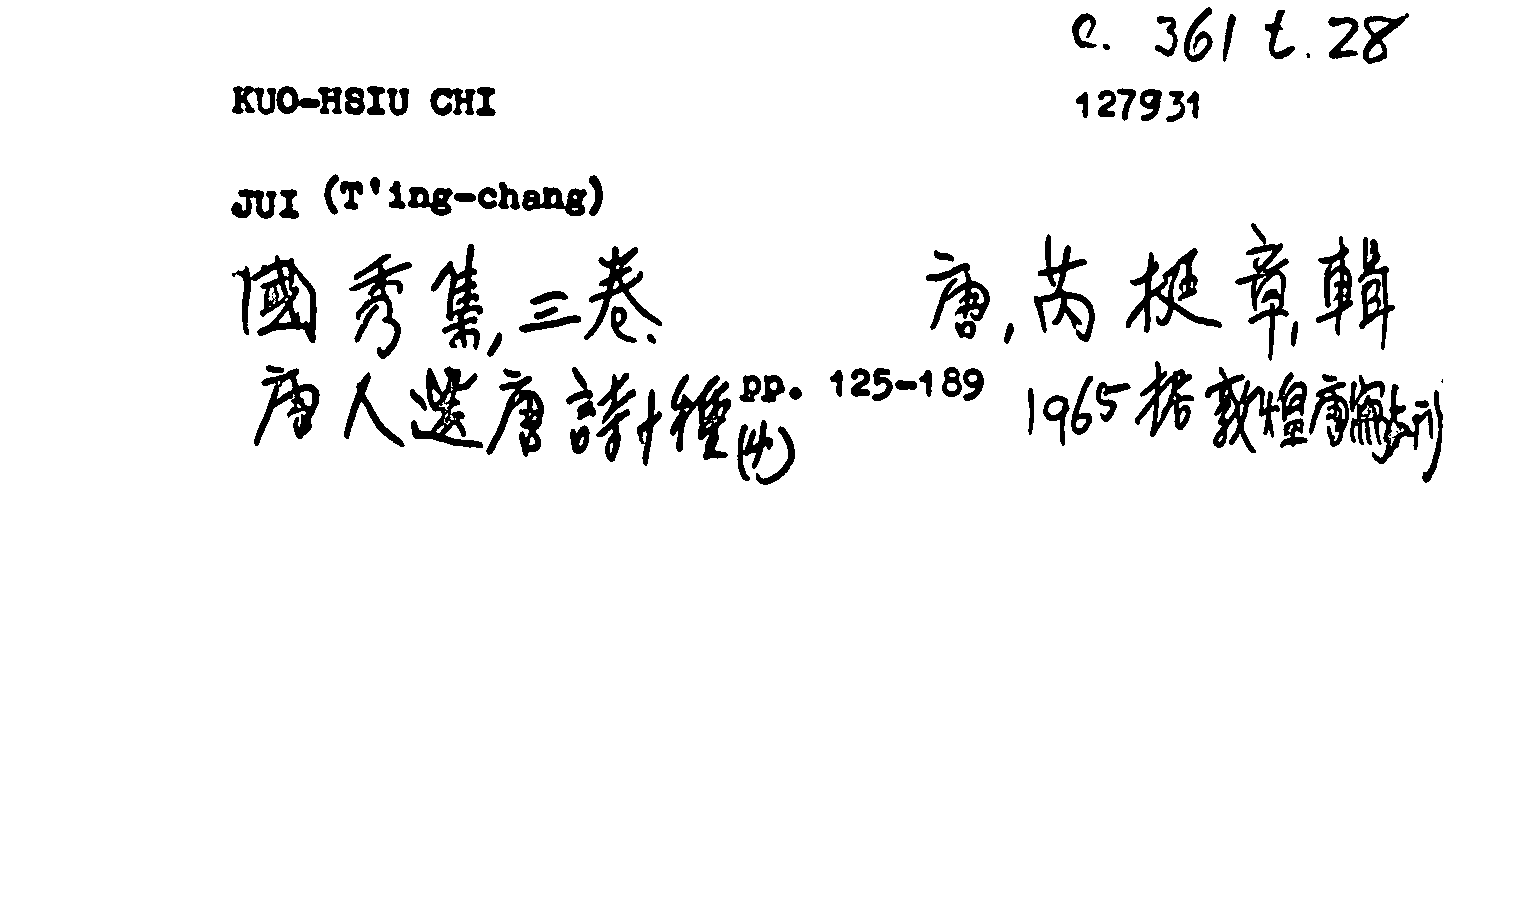 c. 361 t. 28
KUO-HSIU CHI 127931
JUI (T'ing-chang)
國秀集,三卷. 唐,芮挺章,輯
唐人選唐詩十種 pp. 125-189 1965 据敦煌唐 刊
(4)